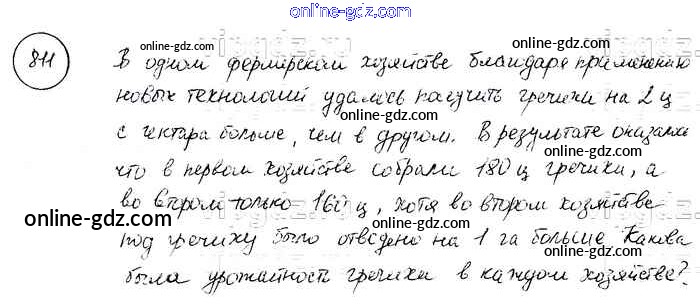 online-gdz.com
811
В одном фермерском хозяйстве благодаря применению
новых технологий удалось получить гречихи на 2 ц
с гектара больше, чем в другом. В результате оказалось
что в первом хозяйстве собрали 180 ц гречихи, а
во втором только 160 ц, хотя во втором хозяйстве
под гречиху было отведено на 1 га больше Какова
была урожайность гречихи в каждом хозяйстве?
online-gdz.com
online-gdz.com
online-gdz.com
online-gdz.com
online-gdz.com
online-gdz.com
online-gdz.com
online-gdz.com
online-gdz.com